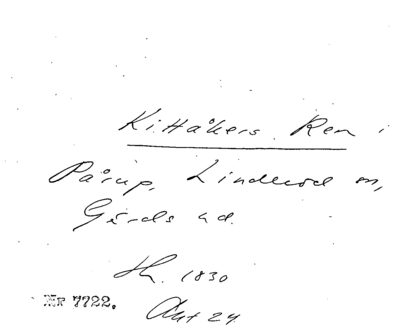 Kittåkers Ren i
Pårup, Linderöd sn,
Gärds hd.
Th. 1830
Nr 7722. Akt 24